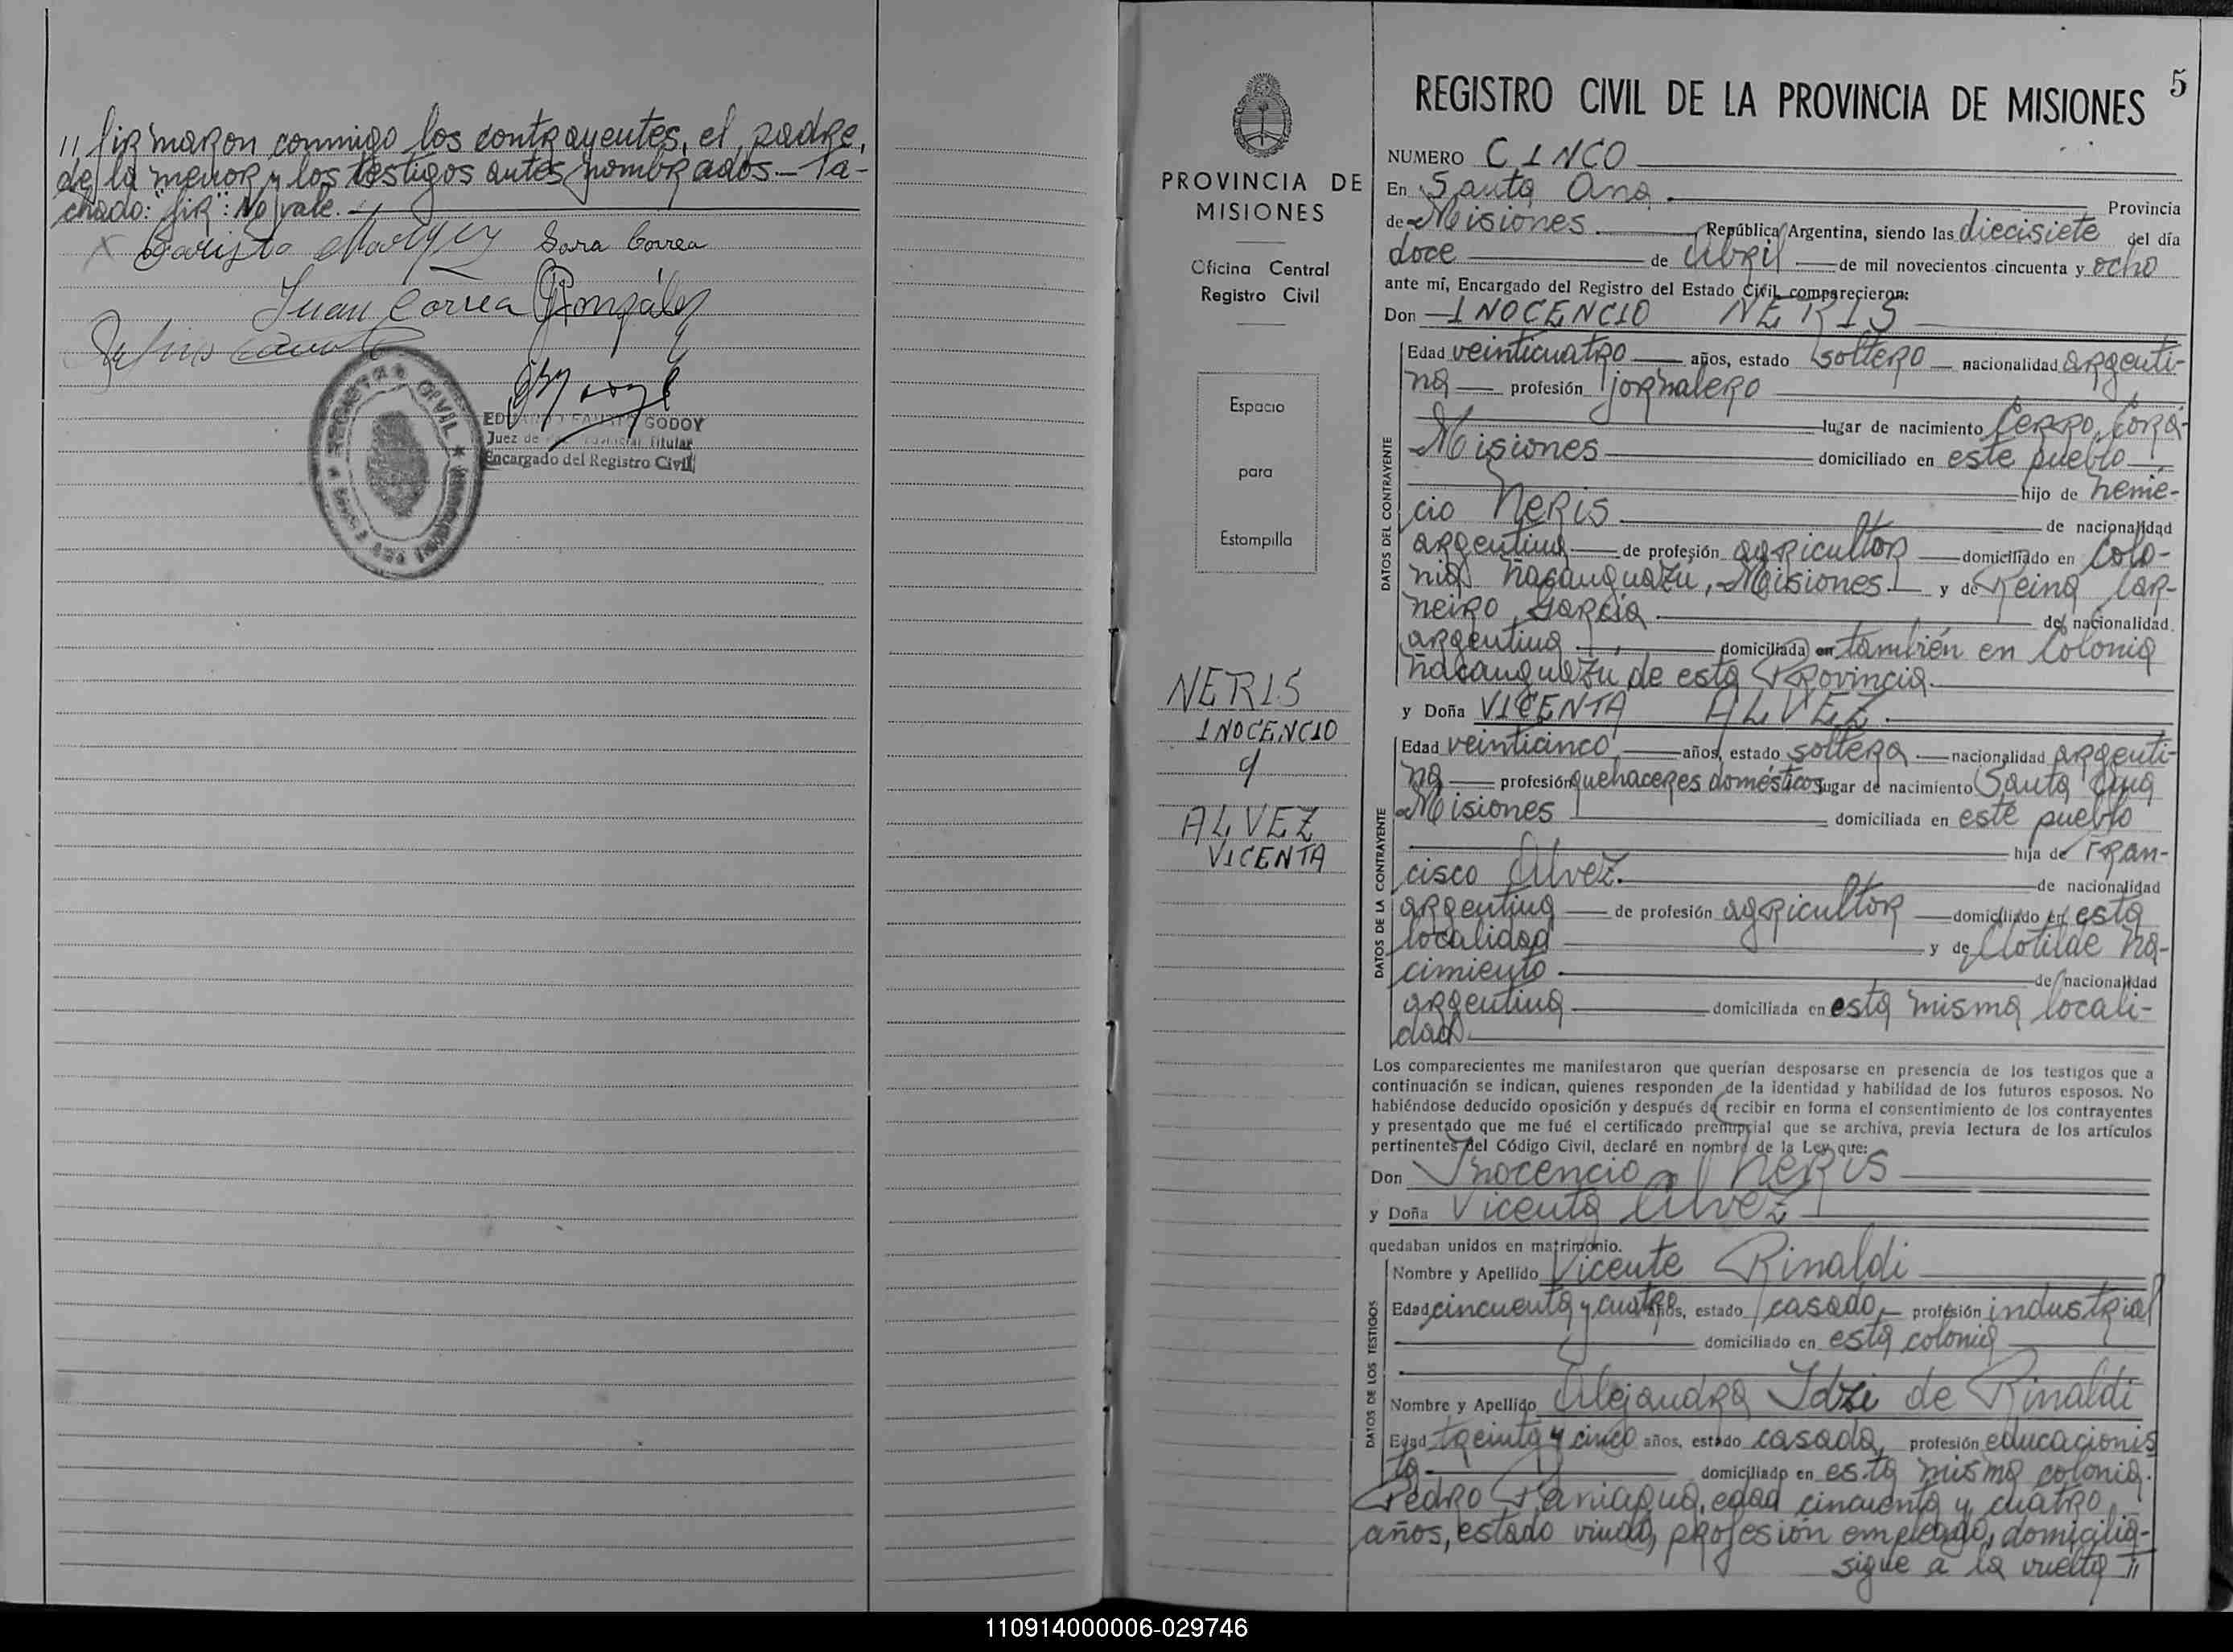 // firmaron conmigo los contrayentes, el padre,
de la menor y los testigos antes nombrados.- Ta-
chado: "fir": No vale.
Sara Correa
Juan Correa González
GODOY
Juez de Titular
Encargado del Registro Civil
REGISTRO CIVIL
PROVINCIA DE
MISIONES
Oficina Central
Registro Civil
Espacio
para
Estampilla
NERIS
INOCENCIO
y
ALVEZ
VICENTA
5
REGISTRO CIVIL DE LA PROVINCIA DE MISIONES
NUMERO CINCO
En Santa Ana. Provincia
de Misiones República Argentina, siendo las diecisiete del día
doce de Abril de mil novecientos cincuenta y ocho
ante mí, Encargado del Registro del Estado Civil, comparecieron:
Don INOCENCIO NERIS
DATOS DEL CONTRAYENTE
Edad veinticuatro años, estado soltero nacionalidad argenti-
na profesión jornalero
lugar de nacimiento Cerro Corá
Misiones domiciliado en este pueblo
hijo de Neme-
cio Neris de nacionalidad
argentina de profesión agricultor domiciliado en Colo-
nia Ñacanguazú, Misiones y de Reina Car-
neiro García de nacionalidad
argentina domiciliada en también en Colonia
Ñacanguazu de esta Provincia.
y Doña VICENTA ALVEZ.
DATOS DE LA CONTRAYENTE
Edad veinticinco años, estado soltera nacionalidad argenti-
na profesión quehaceres domésticos lugar de nacimiento Santa Ana
Misiones domiciliada en este pueblo
hija de Fran-
cisco Alvez. de nacionalidad
argentina de profesión agricultor domiciliado en esta
localidad y de Clotilde Na-
cimiento de nacionalidad
argentina domiciliada en esta misma locali-
dad.
Los comparecientes me manifestaron que querían desposarse en presencia de los testigos que a
continuación se indican, quienes responden de la identidad y habilidad de los futuros esposos. No
habiéndose deducido oposición y después de recibir en forma el consentimiento de los contrayentes
y presentado que me fué el certificado prenupcial que se archiva, previa lectura de los artículos
pertinentes del Código Civil, declaré en nombre de la Ley que:
Don Inocencio Neris
y Doña Vicenta Alvez
quedaban unidos en matrimonio.
DATOS DE LOS TESTIGOS
Nombre y Apellido Vicente Rinaldi
Edad cincuenta y cuatro años, estado casado profesión industrial
domiciliado en esta colonia
Nombre y Apellido Alejandra Idzi de Rinaldi
Edad treinta y cinco años, estado casada, profesión educacionis
ta domiciliado en esta misma colonia.
Pedro Paniagua, edad cincuenta y cuatro
años, estado viudo, profesión empleado, domicilia-
sigue a la vuelta //
110914000006-029746